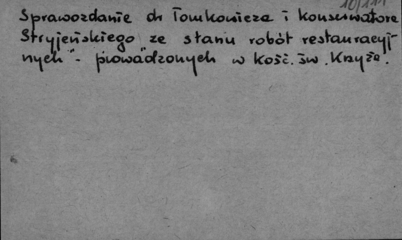 10/111
Sprawozdanie dr Tomkowicza i konserwatora
Stryjeńskiego ze stanu robót restauracyj-
nych - prowadzonych w Kość. św. Krzyża.